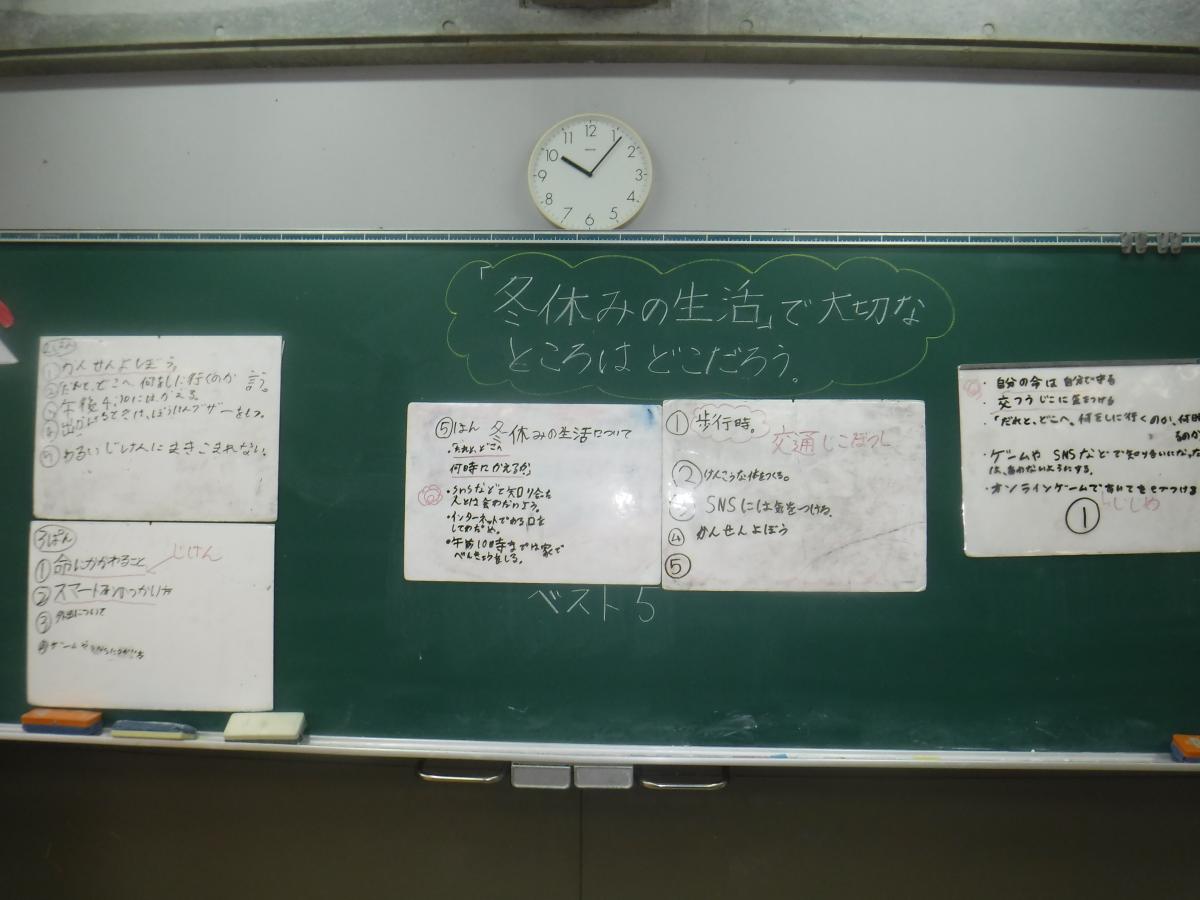 「冬休みの生活」で大切な
ところは どこだろう。
①かんせんよぼう。
②だれと、どこへ、何をしに行くのか 言う。
③午後4:30にはかえる。
④出かけるときは、ぼうはんブザーをもつ。
⑤わるいじけんにまきこまれない。
3ぱん
①命にかかわること
じけん
②スマートホンのつかい方
③外出について
⑤はん 冬休みの生活について
・だれと、どこへ
何時にかえるか
・SNSなどで知り合った
人とは会わない
・インターネットで
・午前10時までは家で
べんきょうをする。
①歩行時。
交通じこぼうし
②けんこうな体をつくる。
③SNSには気をつける
④かんせんよぼう
⑤
ベスト5
・自分の命は自分で守る
・交つうじこに気をつける
・「だれと、どこへ、何をしに行くのか、何時
るのか
・ゲームや SNSなどで知り合いになった
は、あわないようにする。
・オンラインゲームで
いじめ
①
12
1
2
3
4
5
6
7
8
9
10
11